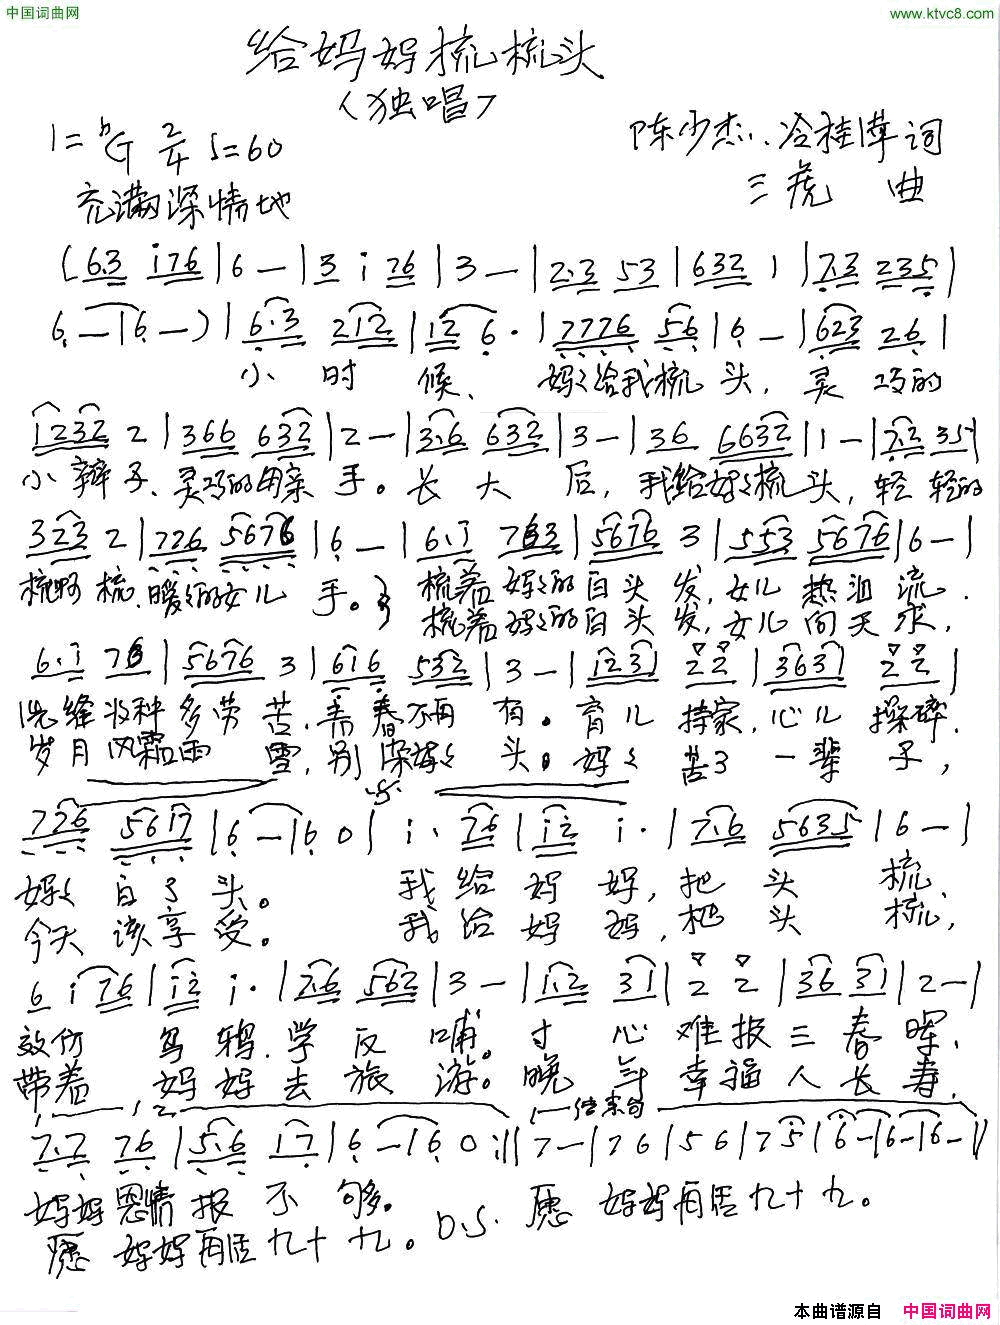 中国词曲网
www.ktvc8.com
给妈妈梳梳头
(独唱)
1=bG 2/4 ♩=60
陈少杰、冷桂萍 词
充满深情地
三虎 曲
(6.3 i76|6 —|3 i 76|3 —|2.3 53|632 1|7.3 235|
6 —|6 —)|6.3 212|12 6.|7776 56|6 —|623 26|
小 时 候、 妈妈给我梳 头, 灵 巧的
1232 2|366 632|2 —|3.6 632|3 —|36 6632|1 —|7.2 35|
小 辫 子、灵巧的母亲 手。长 大 后, 我给妈妈梳 头, 轻 轻的
323 2|726 5676|6 —|6.i 763|5676 3|553 5676|6 —|
梳啊 梳,暖暖的女儿 手。 梳着 妈妈的白头 发,女儿 热泪 流.
梳着 妈妈的白头 发,女儿 问天 求,
6.i 763|5676 3|616 532|3 —|1231 22|3631 22|
洗缝 多劳 苦,青春不再 有。育儿 持家,心儿 操碎.
岁月风霜雨 雪,别染妈妈 头。妈妈 苦了 一辈 子,
726 5617|6 —|6 0|i. 76|i2 i.|7.6 5635|6 —|
妈妈 白了 头。 我 给 妈 妈,把 头 梳、
今天 该享 受。 我 给 妈 妈,把 头 梳,
6 i 76|i2 i.|2.6 562|3 —|1.2 31|2 2|36 31|2 —|
效仿 乌 鸦.学 反 哺。寸 心 难报 三 春 晖、
带着 妈 妈 去 旅 游。晚 年 幸福 人 长 寿.
1. 2. 结束句
7.7 76|5.6 17|6 —|6 0:||7 —|7 6|5 6|7 5|6 —|6 —|6 —||
妈妈恩情 报 不 够。 D.S. 愿 妈妈再活九十九。
愿 妈妈再活九十九。
本曲谱源自 中国词曲网